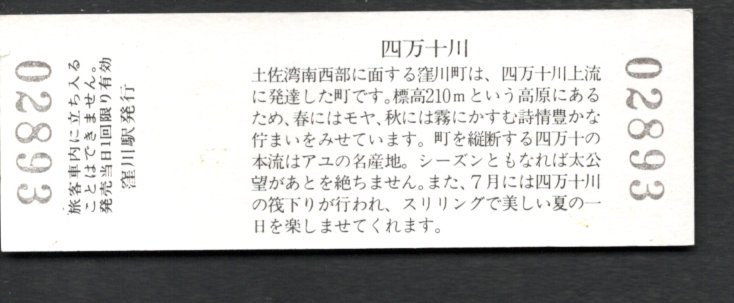 02893
旅客車内に立ち入る
ことはできません。
発売当日1回限り有効
窪川駅発行
四万十川
土佐湾南西部に面する窪川町は、四万十川上流
に発達した町です。標高210mという高原にある
ため、春にはモヤ、秋には霧にかすむ詩情豊かな
佇まいをみせています。町を縦断する四万十の
本流はアユの名産地。シーズンともなれば太公
望があとを絶ちません。また、7月には四万十川
の筏下りが行われ、スリリングで美しい夏の一
日を楽しませてくれます。
02893